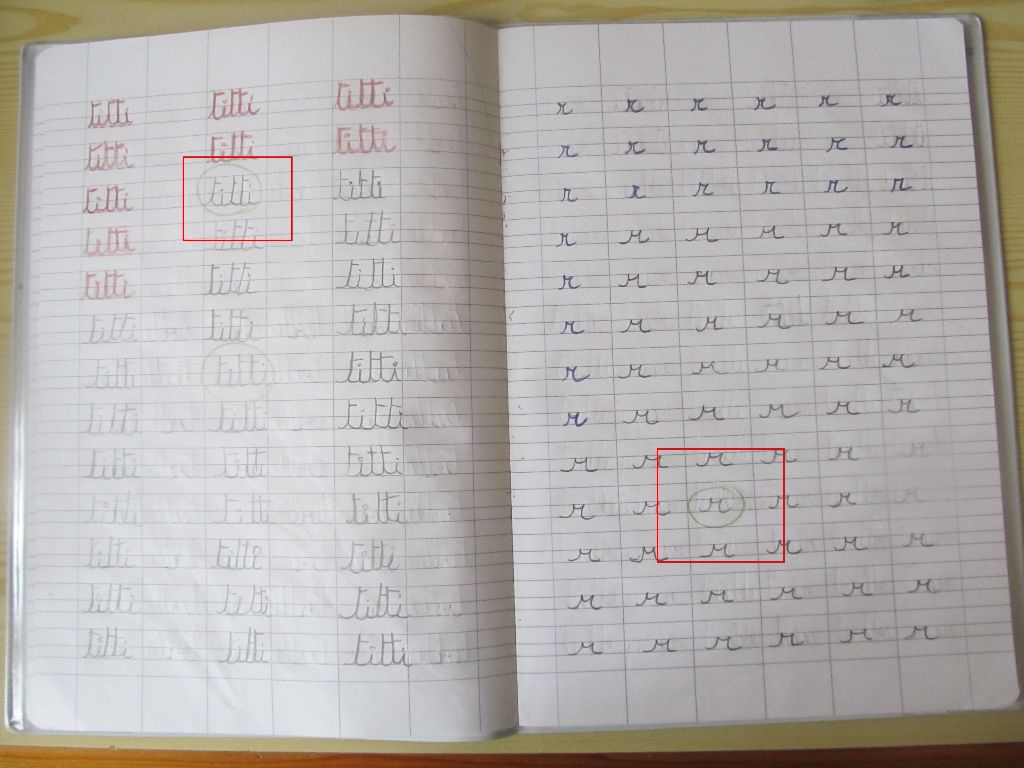 titti titti titti
titti titti titti
titti titti titti
titti titti titti
titti titti titti
titti titti titti
titti titti titti
titti titti titti
titti titti titti
titti titti titti
titti titti titti
titti titti titti
titti titti titti
r r r r r r
r r r r r r
r r r r r r
r r r r r r
r r r r r r
r r r r r r
r r r r r r
r r r r r r
r r r r r r
r r r r r r
r r r r r r
r r r r r r
r r r r r r